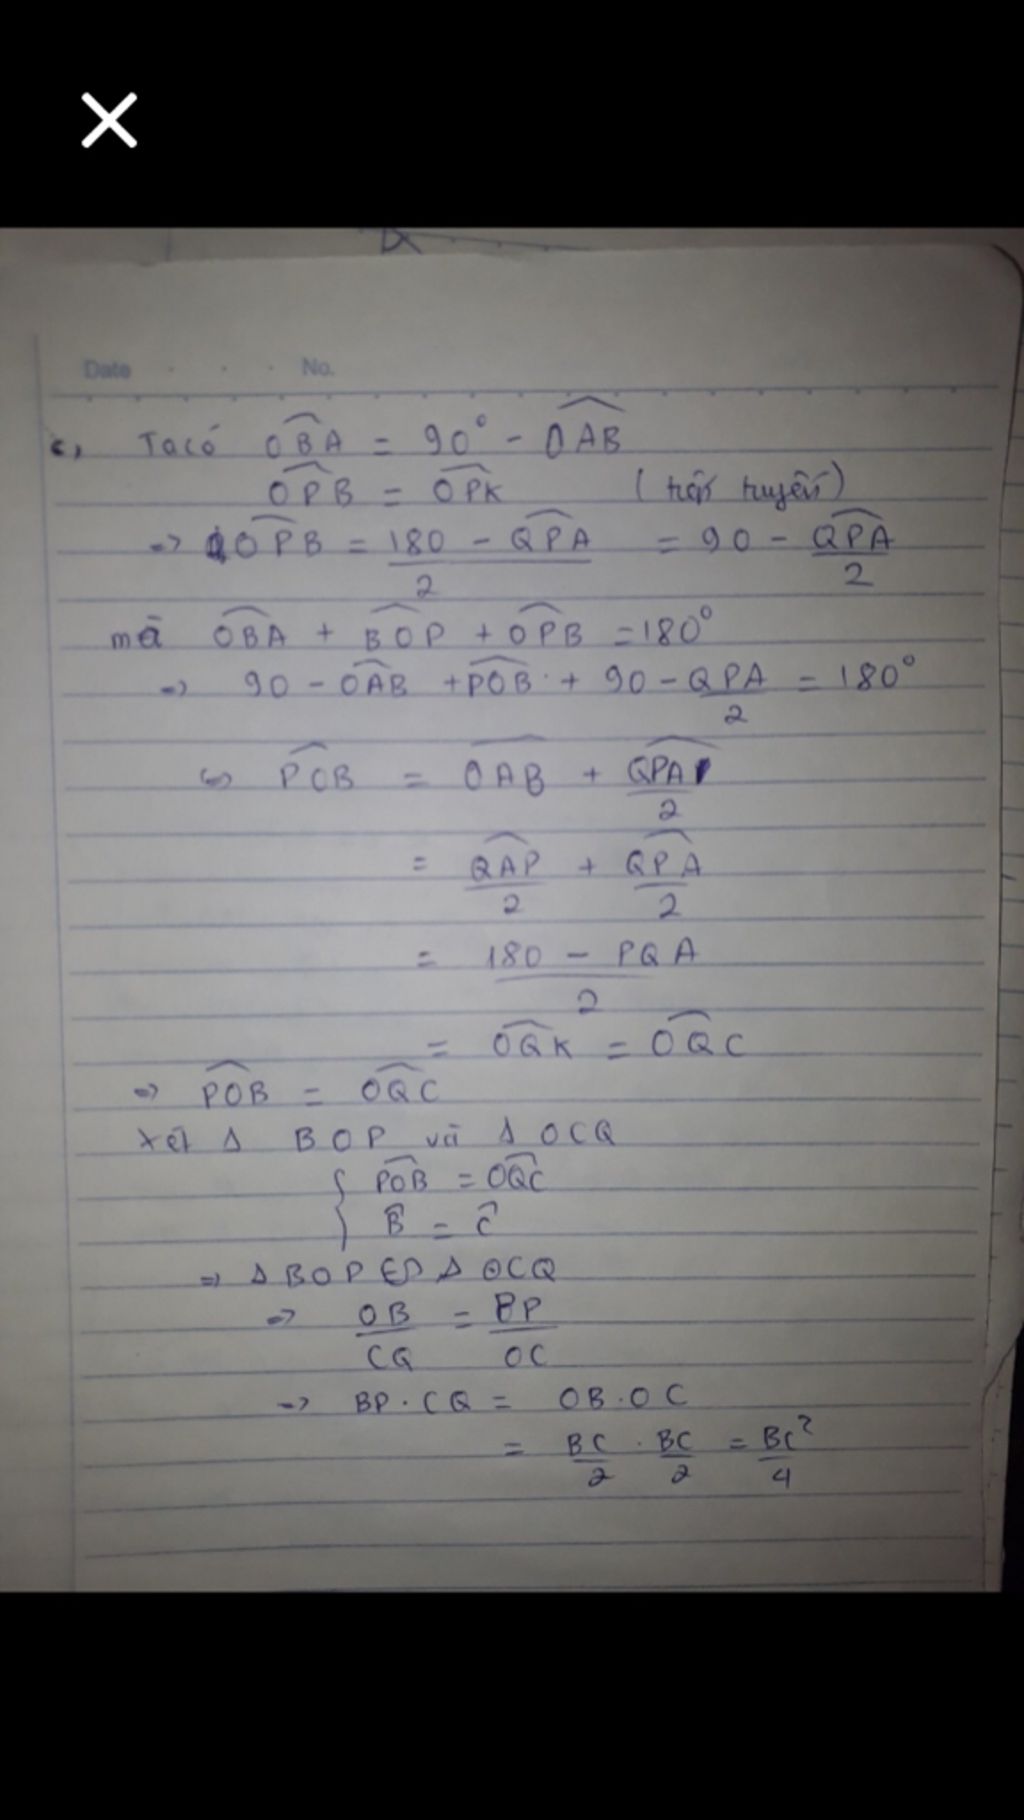 Date No.
c, Ta có OBA = 90° - OAB
OPB = OPK (tiếp tuyến)
=> OPB = 180 - QPA / 2 = 90 - QPA / 2
mà OBA + BOP + OPB = 180°
=> 90 - OAB + POB + 90 - QPA / 2 = 180°
<=> POB = OAB + QPA / 2
= QAP / 2 + QPA / 2
= 180 - PQA / 2
= OQK = OQC
=> POB = OQC
Xét Δ BOP và Δ OCQ
{ POB = OQC
B = C
=> Δ BOP ∽ Δ OCQ
=> OB / CQ = BP / OC
=> BP . CQ = OB . OC
= BC / 2 . BC / 2 = BC² / 4